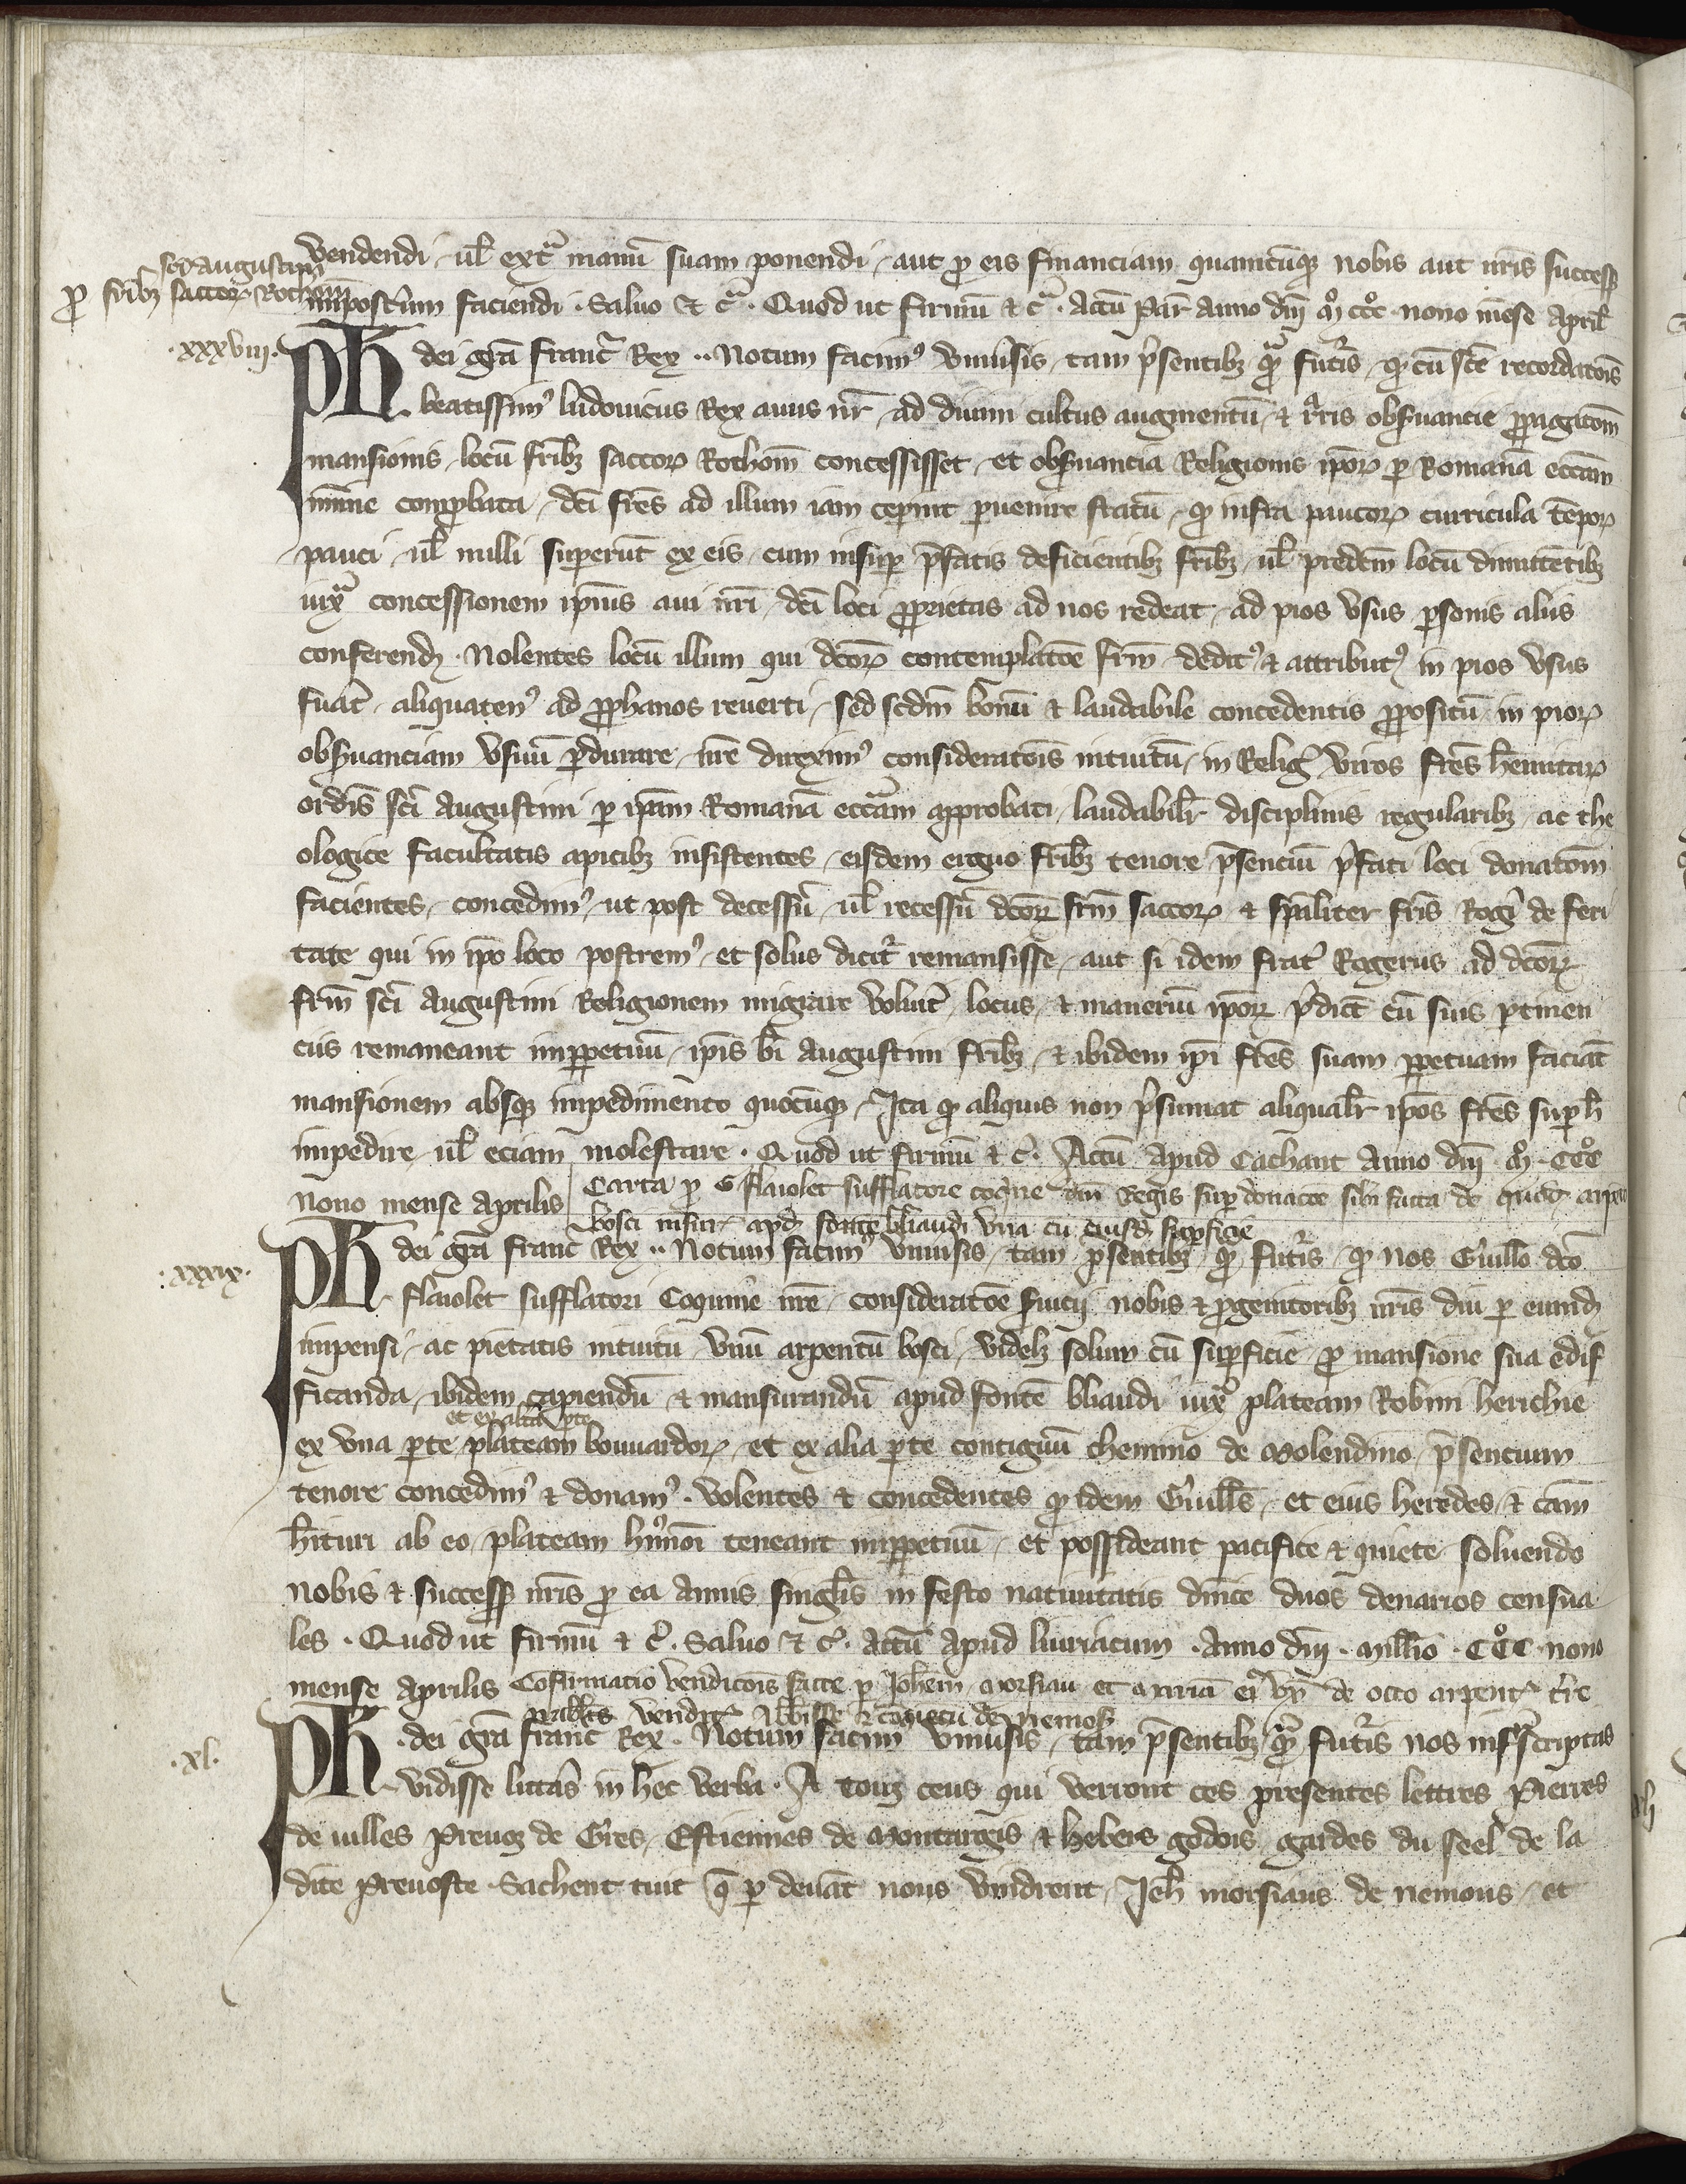 vendendi / ul' extᵃ manū suam ponendi / aut ꝓ eis financiam quamcūqꝫ nobis aut nr̄is success
sci augustini
ꝓ fribꝫ saccoꝝ Rothom
imposterum faciendi . Saluo ⁊ cᵃ . Quod ut firmū ⁊ cᵃ . Actū Par̄ Anno dn̄i mͦ ccͦc nono mēse April'
.xxxviii.
Ph dei gr̄a Franc̄ Rex .. Notum facimꝰ vniuˀsis / tam p̄sentibꝫ qᵃm futˀis / ꝙ cū sc̄e recordatōis
beatissimꝰ ludouicus Rex auus nr̄ / ad diuini cultus augmentū / ⁊ rr̄is obsˀuancie ꝓpagatōm
mansionis / locū fr̄ibꝫ saccoꝝ Rothom̄ concessisset / et obsˀuancia Religionis ip̄oꝝ ꝑ Romanā eccām
minime comꝓbata / dc̄i fr̄es ad illum iam ceperint ꝑuenire statū / ꝙ infra paucoꝝ curricula tēpoꝝ
pauci / ul' nulli superūt ex eis / cum insuꝑ p̄fatis deficientibꝫ fr̄ibꝫ / ul' predcm̄ locū dimittētibꝫ
iuxᵃ concessionem ip̄ius aui nr̄i / dc̄i loci ꝓprietas ad nos redeat / ad pios vsus ꝑsonis aliis
conferendꝫ . Nolentes locū illum qui dc̄oꝝ contemplatōe fr̄m deditꝰ ⁊ attributꝰ in pios vsus
fuˀat / aliquatenꝰ ad ꝓphanos reuerti / sed scdm̄ bonū ⁊ laudabile concedentis ꝓpositū in pioꝝ
obsˀuanciam vsuū ꝑdurare / nr̄e direximꝰ consideratōis intuitū / in Reliḡ viros fr̄es heˀmitaꝝ
ordīs sc̄i Augustini ꝑ ip̄am Romanā ecc̄am approbati / laudabilr̄ disciplinis regularibꝫ / ac the
ologice facultatis apicibꝫ insistentes / eisdem erguo fr̄ibꝫ tenore p̄senciū p̄fati loci donatōm
facientes / concedimꝰ / ut post decessū / ul' recessū dc̄oꝝ fr̄m saccoꝝ ⁊ sp̄aliter fr̄is Rogˀi de feri
tate qui in ip̄o loco postremꝰ / et solus dicitˀ remansisse / aut si idem fratˀ Rogerus ad dc̄oꝝ
fr̄m sc̄i Augustini Religionem migrare voluˀit / locus / ⁊ maneriū ip̄oꝝ p̄dict̄ cū suis ꝑtinen
ciis remaneant imꝑpetuū / ip̄is bī Augustini fr̄ibꝫ / ⁊ ibidem ip̄i fr̄es suam ꝑpetuam faciāt
mansionem absqꝫ impedimento quocūqꝫ / Ita ꝙ aliquis non p̄sumat aliqualr̄ ip̄os fr̄es suꝑ h̄
impedire / ul' eciam molestare . Quod ut firmū ⁊ cˀ . Actū apud Cachant Anno dn̄i . mͦ . CCͦC
nono mense Aprilis
Carta ꝓ G flaiolet sufflatore coqˀne dn̄i Regis suꝑ donacōe sibi facta de quodꝫ arpen
bosci insiti / apd fontē bliaudi vna cū eiusdꝫ suꝑficie
.xxxix.
Ph dei gr̄a Franc̄ Rex .. Notum facimꝰ vniuˀsis / tam p̄sentibꝫ qᵃm futˀis / ꝙ nos Guillo dc̄o
flaiolet sufflatori Coquine nr̄e / consideratōe sˀuicij nobis ⁊ ꝓgenitoribꝫ nr̄is diu ꝑ eumdꝫ
impensi / ac pietatis intuitu / vnū arpentū bosci / videlꝫ solum cū suꝑficie / ꝓ mansione sua edif
ficanda / ibidem capiendū ⁊ mansurandū apud fontē bliaudi iuxᵃ plateam Robini herichie
et ex altˀa ꝑte
ex vna ꝑte plateam bouuardoꝝ / et ex alia ꝑte contiguū chemino de Molendino / p̄sencium
tenore concedimꝰ ⁊ donamꝰ . Volentes ⁊ concedentes ꝙ idem Guill's / et eius heredes / ⁊ cām
h̄ituri ab eo / plateam hmͦōi teneant imꝑpetuū / et possideant pacifice ⁊ quiete soluendo
nobis ⁊ success nr̄is ꝓ ea Annis singl'is in festo natiuitatis dn̄ice duos denarios censua
les . Quod ut firmū ⁊ cˀ . Saluo ⁊ cˀ . Actū Apud liuriacum . Anno dn̄i . mill'io . CCͦC nono
mense Aprilis
Cōfirmatio vendicōis facte ꝑ Joh̄em morsiau et mariā eiꝰ vx̄ de octo arpentˀ tˀre
arabl'is venditˀ Abb̄isse ⁊ conuētui de nemos
.xl.
Ph .dei gr̄a Franc̄ Rex . Notum facimꝰ vniuˀsis / tam p̄sentibꝫ qᵃm futˀis nos infˀscriptas
vidisse litˀas in hec verba . A touz ceus qui verront ces presentes lettres Pierres
de uilles Preuoz de Gˀes / Estiennes de Montargis ⁊ hebers godois gardes du seel de la
dite Preuoste . Sachent tuit q̄ ꝑ deuāt nous vindrent / Jeh̄ morsiaus de nemous / et